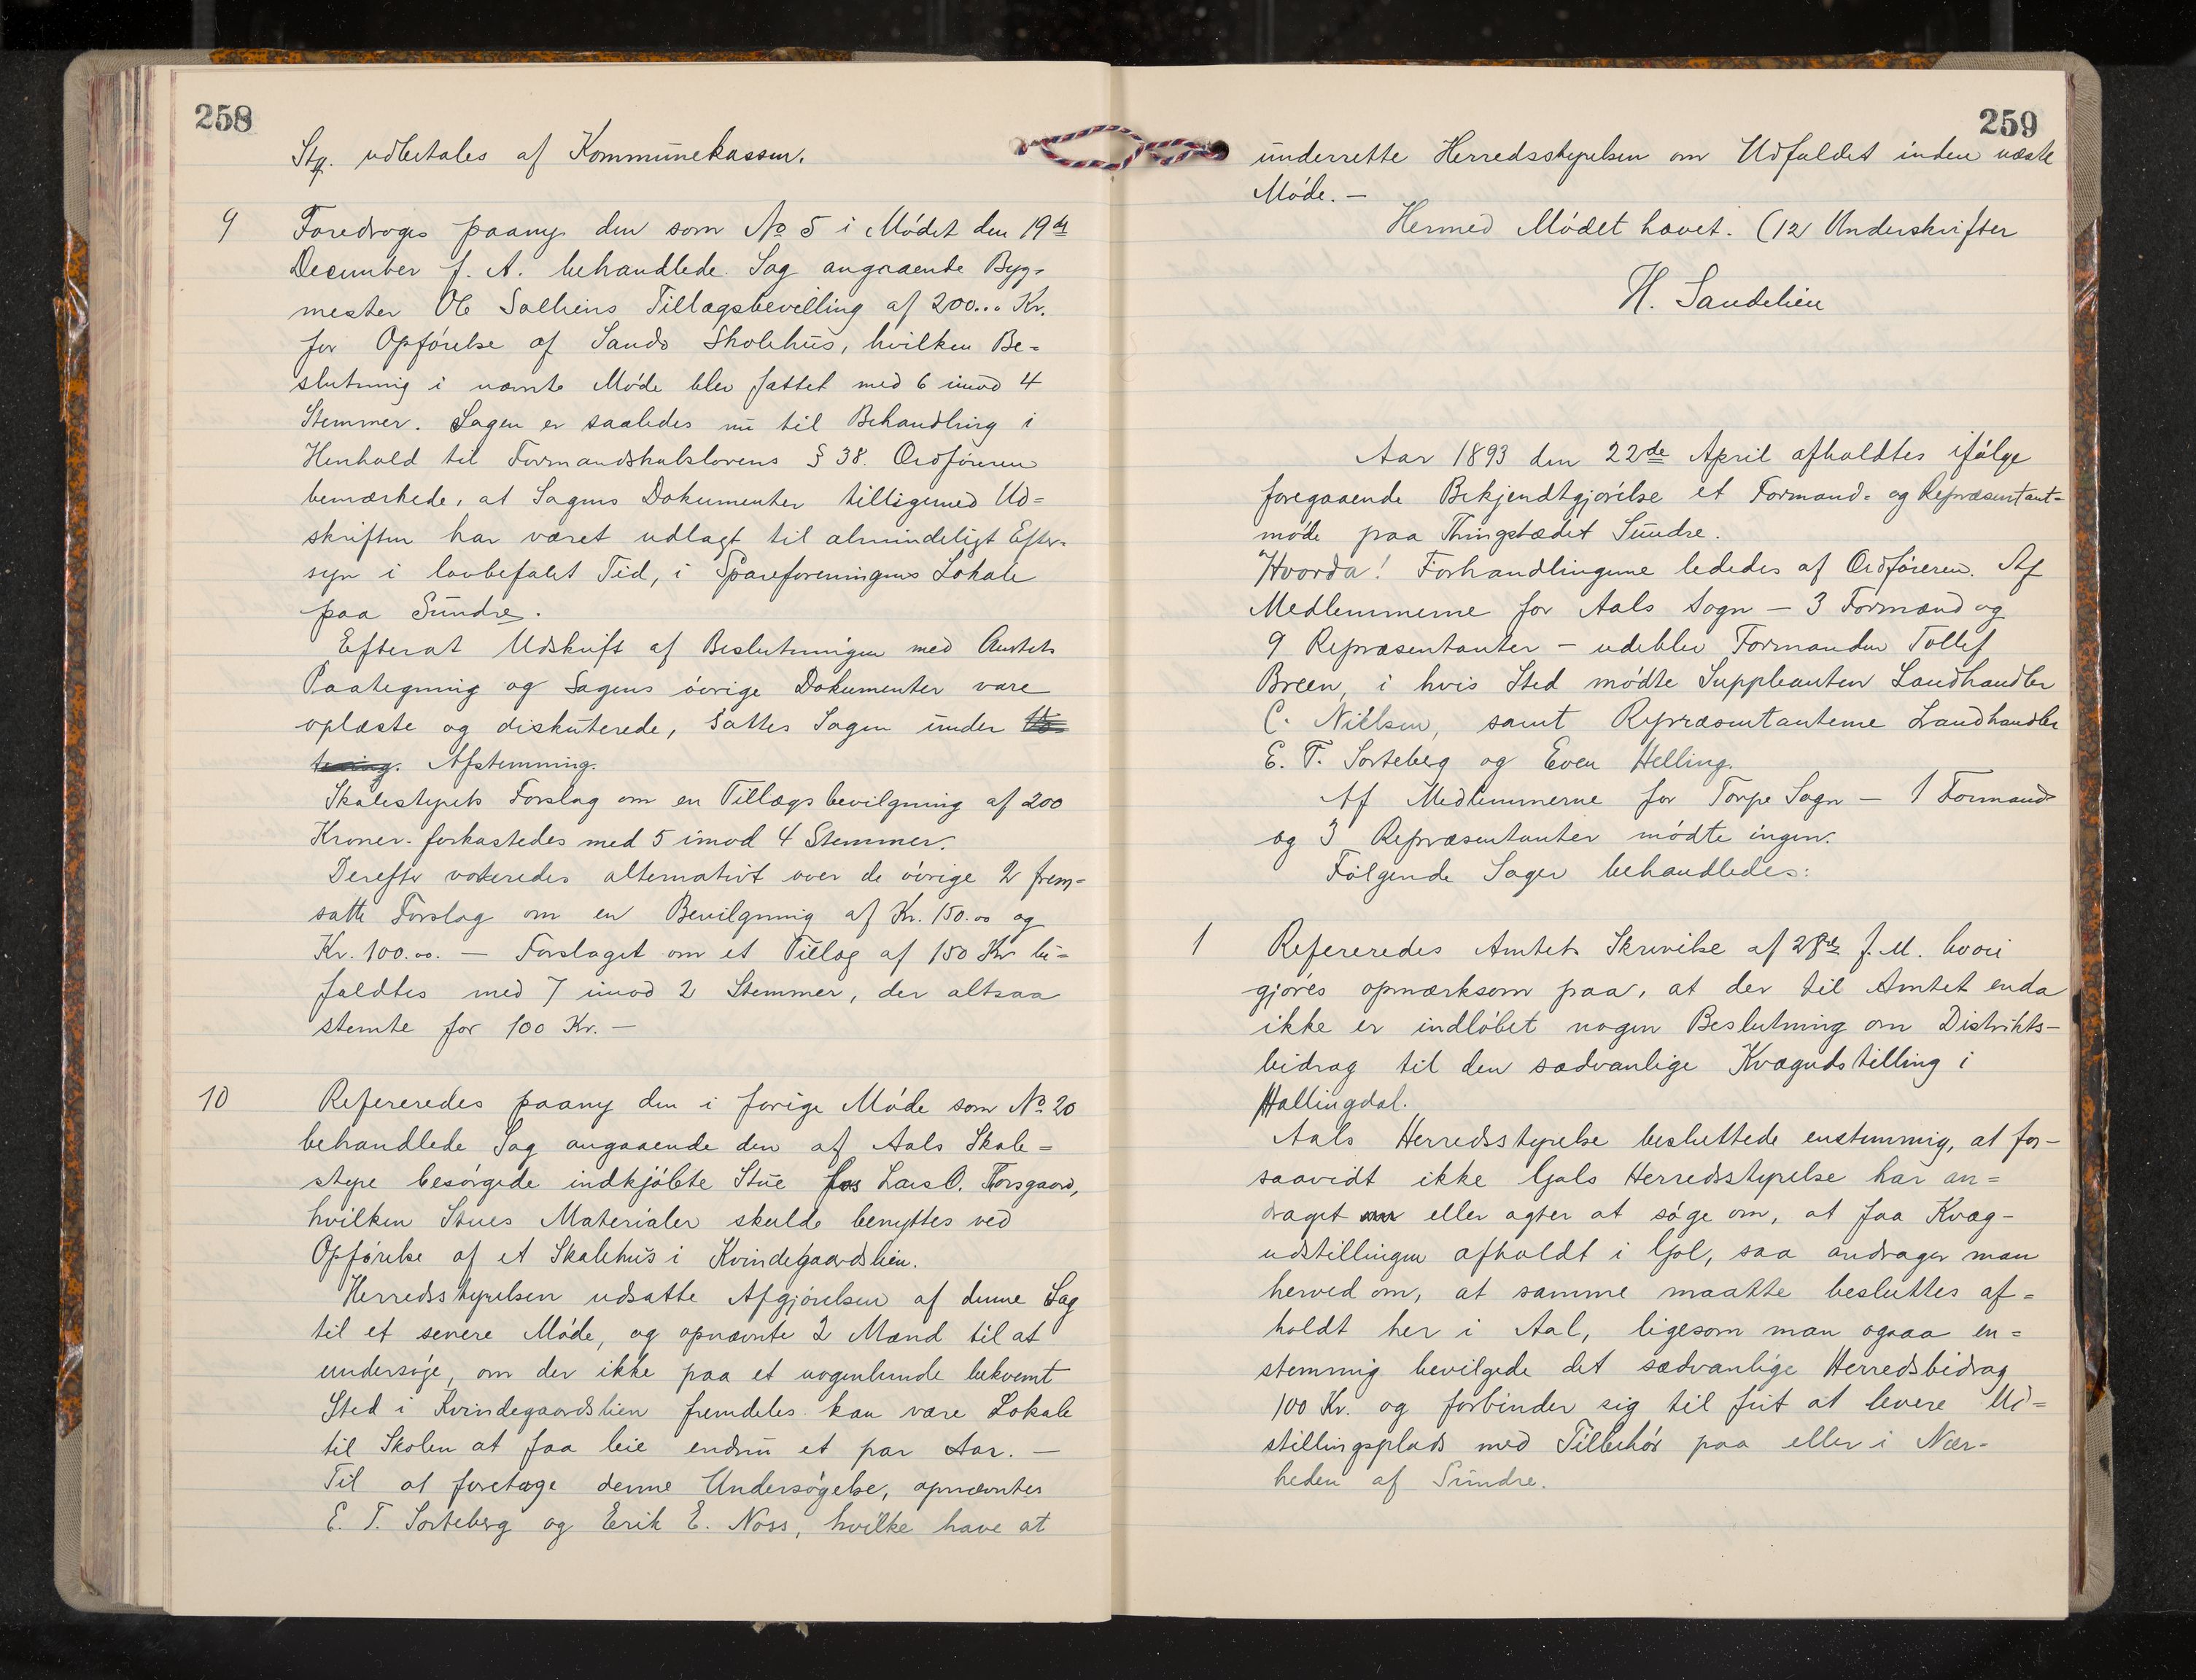 258
Stq. udbetales af Kommunekassen.
9 Foredroges paany den som No 5 i Mødet den 19de
December f. A. behandlede Sag angaaende Byg-
mester Ole Solheins Tillægsbevilling af 200... Kr.
for Opførelse af Sando Skolehus, hvilken Be=
slutning i nævnte Møde blev fattet med 6 imod 4
Stemmer. Sagen er saaledes nu til Behandling i
Henhold til Formandskabslovens § 38. Ordføreren
bemærkede, at Sagens Dokumenter tilligemed Ud=
skriften har været udlagt til almindeligt Efter-
syn i lovbefalet Tid, i Spareforeningens Lokale
paa Sundre.
Efterat Udskrift af Beslutningen med Amtets
Paategning og Sagens øvrige Dokumenter vare
oplæste og diskuterede, sattes Sagen under Vo=
tering. Afstemming.
Skolestyrets Forslag om en Tillægsbevilgning af 200
Kroner forkastedes med 5 imod 4 Stemmer.
Derefter voteredes alternativt over de øvrige 2 frem=
satte Forslag om en Bevilgning af Kr. 150.00 og
Kr. 100.00. — Forslaget om et Tillæg af 150 Kr bi=
faldtes med 7 imod 2 Stemmer, der altsaa
stemte for 100 Kr. —
10 Refereredes paany den i forige Møde som No 20
behandlede Sag angaaende den af Aals Skole=
styre besørgede indkjøbte Stue hos Lars O. Thorsgaard,
hvilken Stues Materialer skulde benyttes ved
Opførelse af et Skolehus i Kvindegaardslien.
Herredsstyrelsen udsatte Afgjørelsen af denne Sag
til et senere Møde, og opnævnte 2 Mænd til at
undersøge, om der ikke paa et nogenlunde bekvemt
Sted i Kvindegaardslien fremdeles kan være Lokale
til Skolen at faa leie endnu et par Aar. —
Til at foretage denne Undersøgelse, opnævntes
E. T. Sorteberg og Erik E. Noss, hvilke have at
259
underrette Herredsstyrelsen om Udfaldet inden næste
Møde. —
Hermed Mødet hævet. (12 Underskrifter
H. Sandelien
Aar 1893 den 22de April afholdtes ifølge
foregaaende Bekjendtgjørelse et Formand- og Repræsentant=
møde paa Thingstedet Sundre.
Hvorda! Forhandlingerne lededes af Ordføreren. Af
Medlemmerne for Aals Sogn — 3 Formænd og
9 Repræsentanter — udeblev Formanden Tollef
Breen, i hvis Sted mødte Suppleanten Landhandler
C. Nielsen, samt Repræsentanterne Landhandler
E. T. Sorteberg og Even Helling.
Af Medlemmerne for Torpe Sogn — 1 Formand
og 3 Repræsentanter mødte ingen.
Følgende Sager behandledes:
1 Refereredes Amtets Skrivelse af 28de f. M. hvori
gjøres opmærksom paa, at der til Amtet enda
ikke er indløbet nogen Beslutning om Distrikts-
bidrag til den sædvanlige Kvægudstilling i
Hallingdal.
Aals Herredsstyrelse besluttede enstemmig, at for-
saavidt ikke Gols Herredsstyrelse har an=
draget om eller agter at søge om, at faa Kvæg-
udstillingen afholdt i Gol, saa andrager man
herved om, at samme maatte besluttes af=
holdt her i Aal, ligesom man ogsaa en=
stemmig bevilgede det sædvanlige Herredsbidrag
100 Kr. og forbinder sig til frit at levere Ud=
stillingsplads med Tilbehør paa eller i Nær-
heden af Sundre.